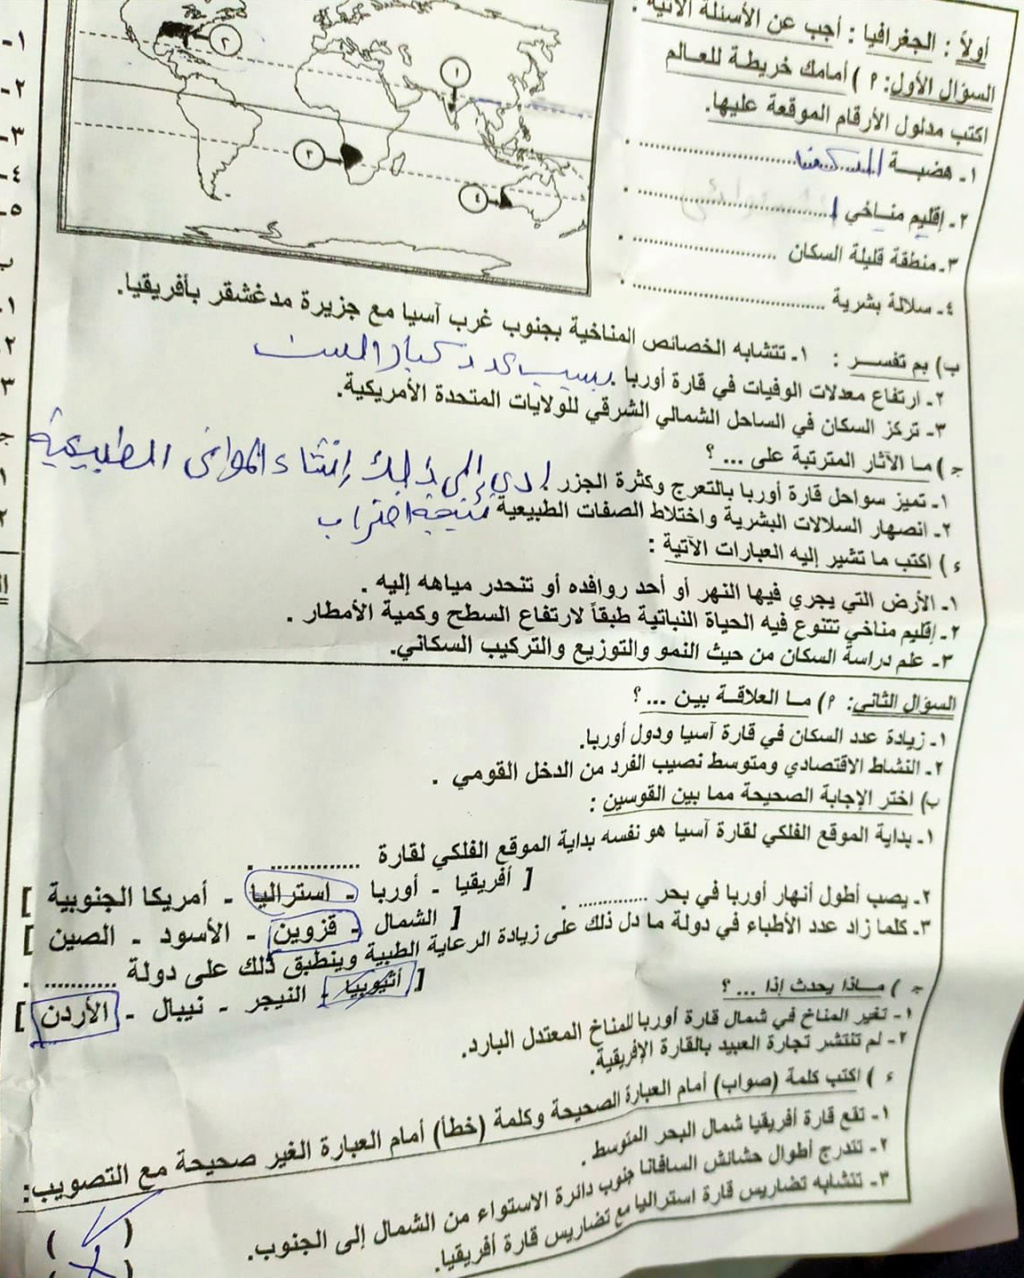 أولاً : الجغرافيا : أجب عن الأسئلة الآتية :
السؤال الأول: ٢) أمامك خريطة للعالم
اكتب مدلول الأرقام الموقعة عليها.
١
٢
٣
٤
١- هضبة ............
٢- إقليم مناخي ............
٣- منطقة قليلة السكان ............
٤- سلالة بشرية ............
ب) بم تفسر : ١- تتشابه الخصائص المناخية بجنوب غرب آسيا مع جزيرة مدغشقر بأفريقيا.
٢- ارتفاع معدلات الوفيات في قارة أوربا . بسبب عدد كبار السن
٣- تركز السكان في الساحل الشمالي الشرقي للولايات المتحدة الأمريكية.
جـ) ما الآثار المترتبة على ... ؟
١- تميز سواحل قارة أوربا بالتعرج وكثرة الجزر ادي إلى ذلك إنشاء الموانى الطبيعية
٢- انصهار السلالات البشرية واختلاط الصفات الطبيعية نتيجة
ء) اكتب ما تشير إليه العبارات الآتية :
١- الأرض التي يجري فيها النهر أو أحد روافده أو تنحدر مياهه إليه .
٢- إقليم مناخي تتنوع فيه الحياة النباتية طبقاً لارتفاع السطح وكمية الأمطار .
٣- علم دراسة السكان من حيث النمو والتوزيع والتركيب السكاني.
السؤال الثاني: ٢) ما العلاقة بين ... ؟
١- زيادة عدد السكان في قارة آسيا ودول أوربا.
٢- النشاط الاقتصادي ومتوسط نصيب الفرد من الدخل القومي .
ب) اختر الإجابة الصحيحة مما بين القوسين :
١- بداية الموقع الفلكي لقارة آسيا هو نفسه بداية الموقع الفلكي لقارة ............ .
[ أفريقيا - أوربا - استراليا - أمريكا الجنوبية ]
٢- يصب أطول أنهار أوربا في بحر ............ .
[ الشمال - قزوين - الأسود - الصين ]
٣- كلما زاد عدد الأطباء في دولة ما دل ذلك على زيادة الرعاية الطبية وينطبق ذلك على دولة ............ .
[ أثيوبيا - النيجر - نيبال - الأردن ]
جـ) ماذا يحدث إذا ... ؟
١- تغير المناخ في شمال قارة أوربا للمناخ المعتدل البارد.
٢- لم تنتشر تجارة العبيد بالقارة الإفريقية.
ء) اكتب كلمة (صواب) أمام العبارة الصحيحة وكلمة (خطأ) أمام العبارة الغير صحيحة مع التصويب:
١- تقع قارة أفريقيا شمال البحر المتوسط . ( )
٢- تتدرج أطوال حشائش السافانا جنوب دائرة الاستواء من الشمال إلى الجنوب. ( )
٣- تتشابه تضاريس قارة استراليا مع تضاريس قارة أفريقيا.